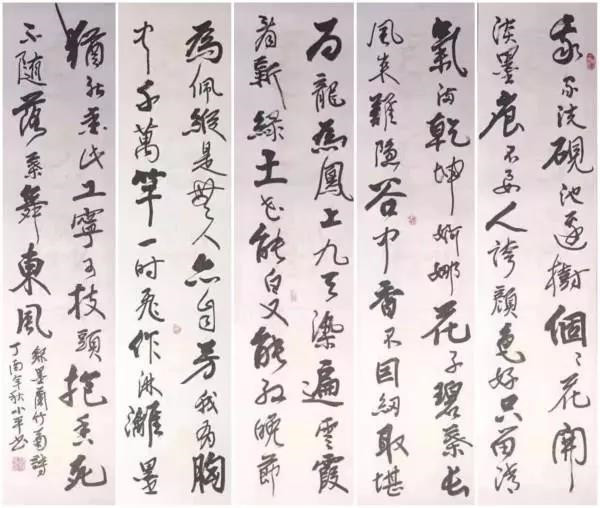 我家洗硯池邊樹個々花開
淡墨痕不要人誇顏色好只留清
氣滿乾坤婀娜花子碧葉長
風來難隱谷中香不因紉取堪
為龍為鳳上九天染遍雲霞
看新綠土花能白又能紅晚節
為佩縱是無人亦自芳我有胸
中千萬竿一時飛作淋漓墨
猶能愛此工寧可枝頭抱香死
不隨落葉舞東風
錄墨蘭竹菊詩
丁酉年秋小平書